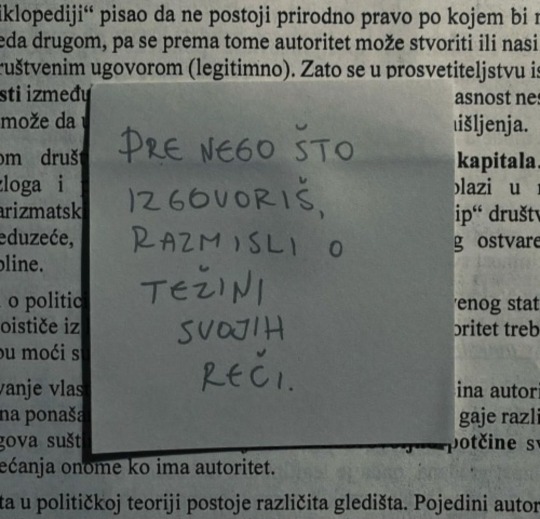 iklopediji“ pisao da ne postoji prirodno pravo po kojem bi
eda drugom, pa se prema tome autoritet može stvoriti ili nasi
ruštvenim ugovorom (legitimno). Zato se u prosvetiteljstvu
sti između asnost
može da išljenja.
PRE NEGO ŠTO
IZGOVORIŠ,
RAZMISLI O
TEŽINI
SVOJIH
REČI.
om kapitala.
zloga i olazi u
arizmatsk ip“ društv
eduzeće, g ostvare
oline.
o politič venog stat
oističe iz oritet treb
ou moći
vanje vlas ina autori
na ponaša gaje razli
gova sušt potčine
ećanja onome ko ima autoritet.
ta u političkoj teoriji postoje različita gledišta. Pojedini autor